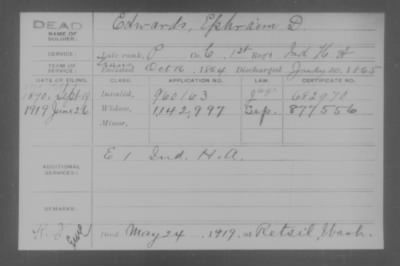 DEAD
NAME OF SOLDIER:
Edwards, Ephraim D.
SERVICE:
Late rank, P Co. E, 1st Reg't Ind. H A
TERM OF SERVICE:
Enlisted Oct 16, 1864 Discharged Jan'y 10, 1865
DATE OF FILING. CLASS. APPLICATION NO. LAW. CERTIFICATE NO.
1890, Sept 19 Invalid, 960163 682970
1919 June 26 Widow, 1142,997 877556
Minor,
ADDITIONAL SERVICES:
E 1 Ind. H.A.
REMARKS:
Died May 24, 1919, at Retsil, Wash.